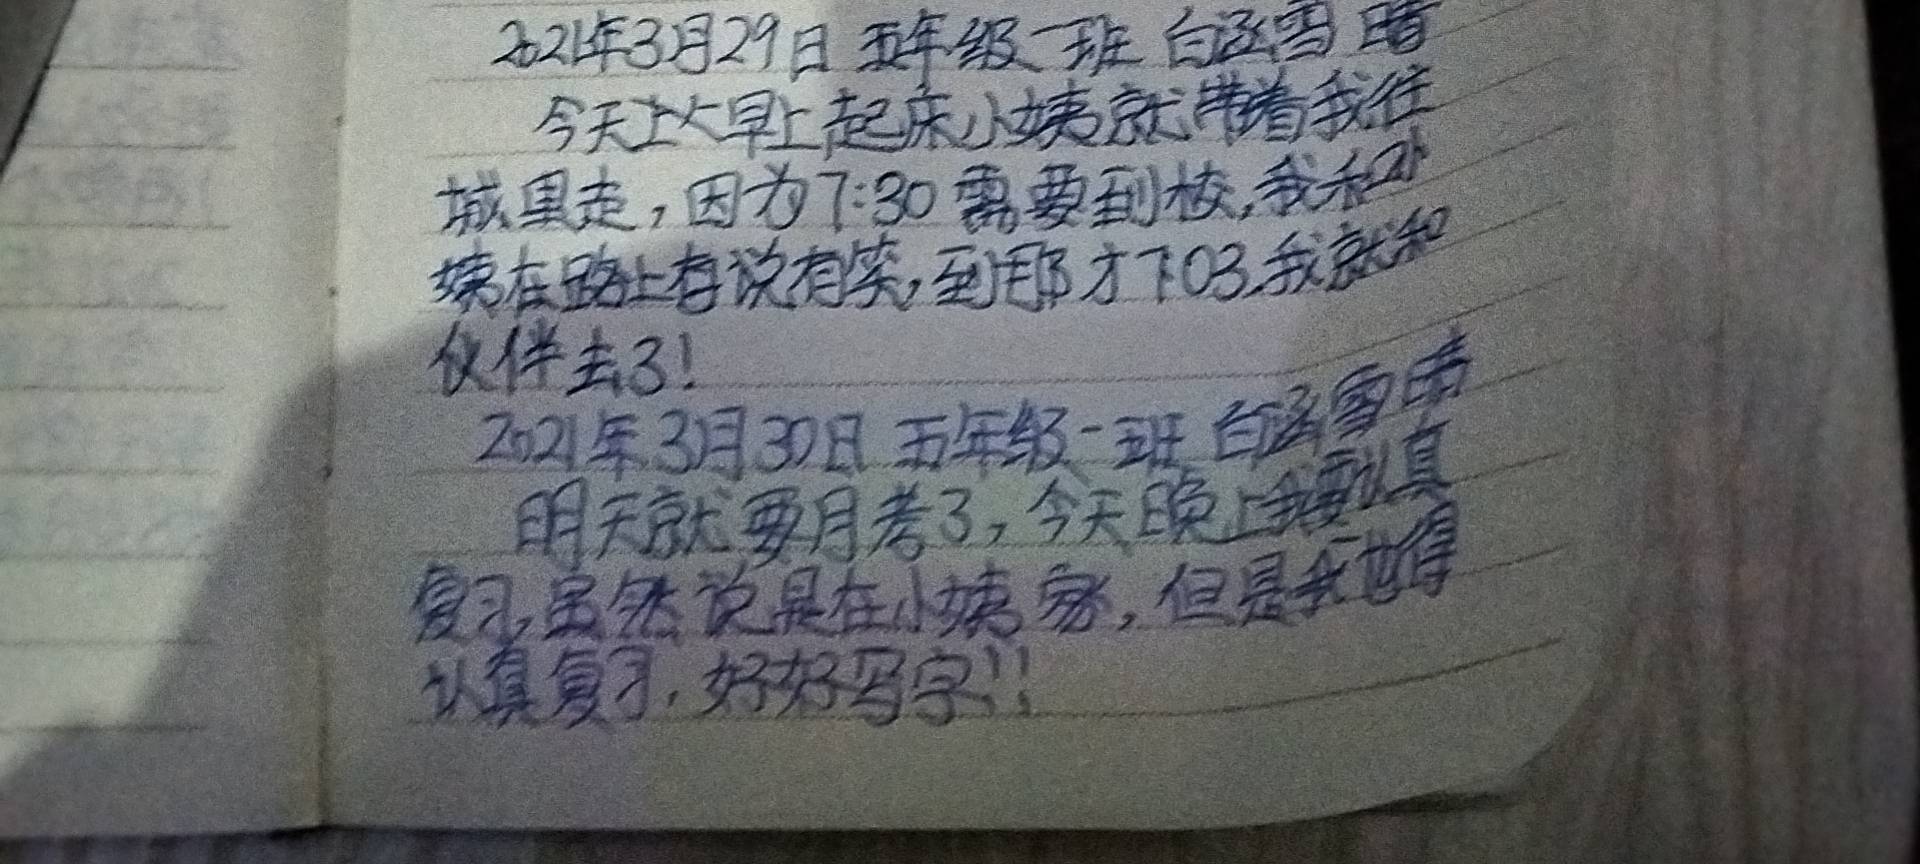 2021年3月29日 五年级一班 白涵雪 晴
今天上大早上起床小姨就带着我往
城里走，因为7:30需要到校，我和小
姨在路上有说有笑，到那才7:03.我就和
伙伴去了！
2021年3月30日 五年级一班 白涵雪 晴
明天就要月考了，今天晚上我要认真
复习，虽然说是在小姨家，但是我也得
认真复习，好好写字！！